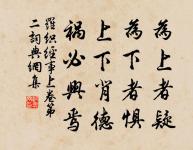 為上者疑
為下者懼
上下背德
禍必興焉
羅織經事上卷第
二詞典網集